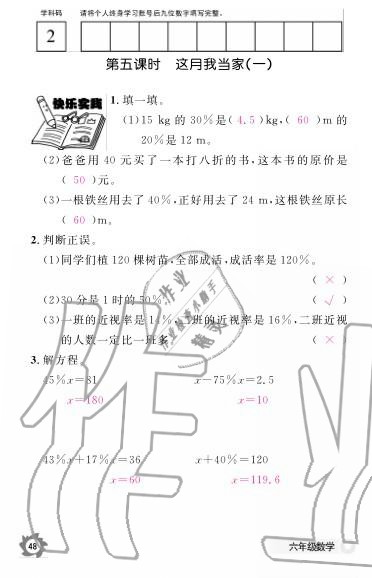 学科码 请将个人终身学习账号后九位数字填写完整。
2
第五课时 这月我当家(一)
快乐实践
1. 填一填。
(1)15 kg 的 30%是( 4.5 )kg,( 60 )m 的
20%是 12 m。
(2)爸爸用 40 元买了一本打八折的书,这本书的原价是
( 50 )元。
(3)一根铁丝用去了 40%,正好用去了 24 m,这根铁丝原长
( 60 )m。
2. 判断正误。
(1)同学们植 120 棵树苗,全部成活,成活率是 120%。
( × )
(2)30 分是 1 时的 50%。 ( √ )
(3)一班的近视率是 14%,二班的近视率是 16%,二班近视
的人数一定比一班多。 ( × )
3. 解方程。
45%x=81 x-75%x=2.5
x=180 x=10
43%x+17%x=36 x+40%=120
x=60 x=119.6
48 六年级数学
作业
精灵
作业